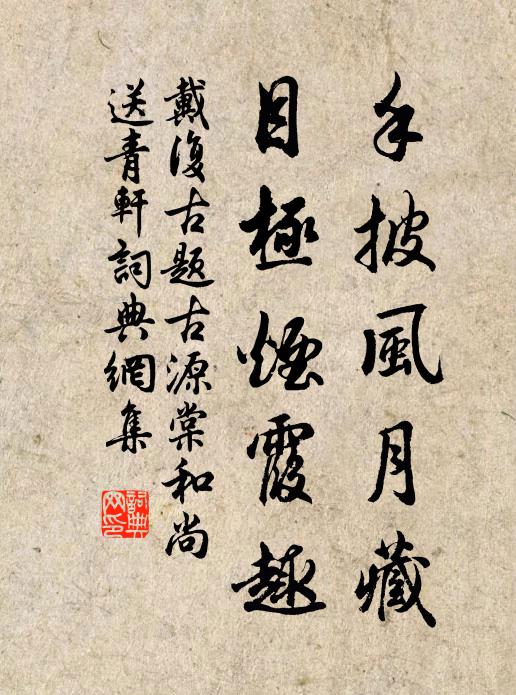 手披風月藏
目極煙霞趣
戴復古題古源棠和尚
送青軒詞典網集
詞典网印